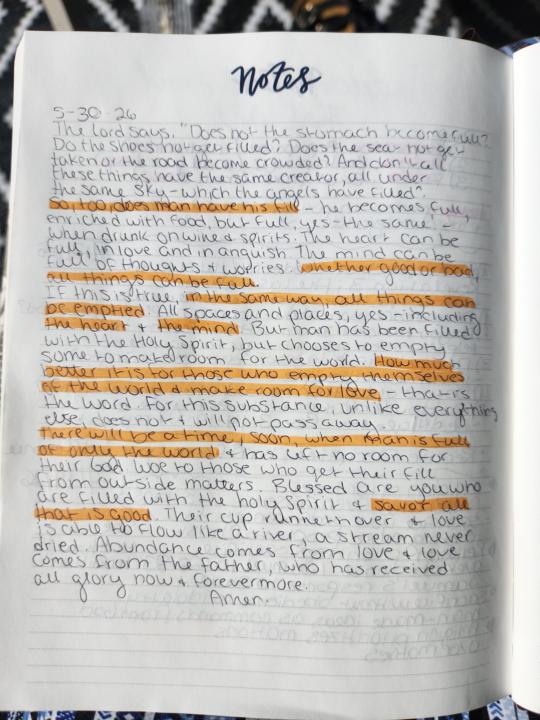 Notes
5-30-26
The Lord says, "Does not the stomach become full?
Do the shoes not get filled? Does the sea not get
taken or the road become crowded? And don't all
these things have the same creator, all under
the same sky - which the angels have filled".
So, too, does man have his fill - he becomes full,
enriched with food, but full, yes - the same! -
when drunk on wine & spirits. The heart can be
full, in love and in anguish. The mind can be
full of thoughts & worries. Whether good or bad,
all things can be full.
If this is true, in the same way, all things can
be emptied. All spaces and places, yes - including
the heart & the mind. But man has been filled
with the Holy Spirit, but chooses to empty
some to make room for the world. How much
better it is for those who empty themselves
of the world & make room for love - that is
the word. For this substance, unlike everything
else, does not & will not pass away.
There will be a time, soon, when man is full
of only the world & has left no room for
their God. Woe to those who get their fill
from outside matters. Blessed are you who
are filled with the holy Spirit & savor all
that is good. Their cup runneth over & love
is able to flow like a river, a stream never
dried. Abundance comes from love & love
comes from the father, who has received
all glory now & forevermore.
Amen.